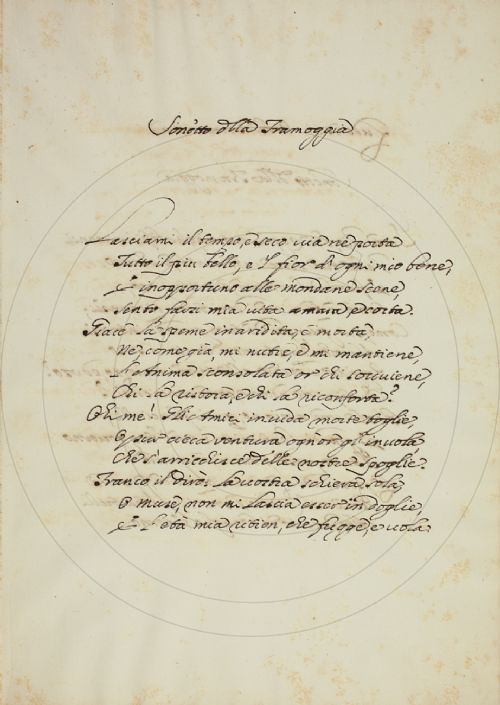 Sonetto della Tramoggia
Lasciami il tempo, e seco via ne porta
Tutto il piu bello, e 'l fior d'ogni mio bene,
E inopportuno alle mondane scene,
Sento farsi mia vita amara, e corta.
Giace la speme inaridita, e morta,
Ne, come già, mi nutre, e mi mantiene,
L'anima sconsolata or chi sovviene,
Chi la ristora, e chi la riconforta?
Ohi me! Gli Amici invida morte toglie,
O piu cieca ventura ognor gl'invola
Che s'arricchisce delle nostre spoglie.
Franco il dirò: la vostra schiera sola,
O Muse, non mi lascia esser in doglie,
E l'età mia ritien, che fugge, e vola.